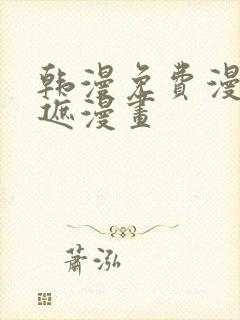 韩漫免费漫
遮漫畫
萧泓